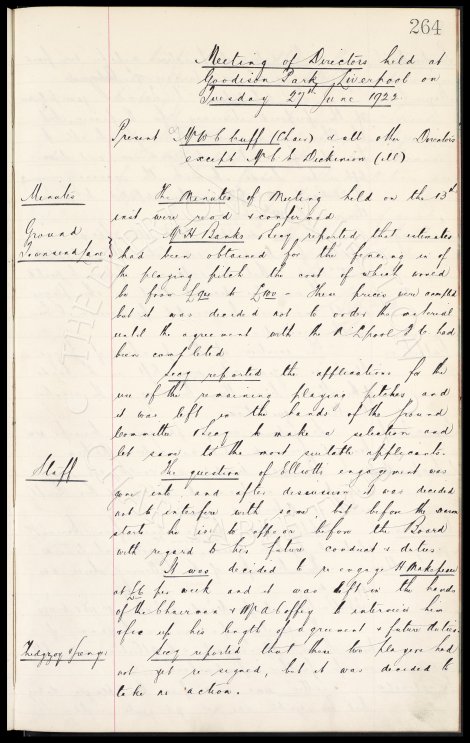 264
Meeting of Directors held at
Goodison Park, Liverpool on
Tuesday 27th June 1922.
Present Mr W C Cuff (Chair) & all other Directors
except Mr C E Dickinson (ill)
Minutes
The Minutes of Meeting held on the 13th
inst were read & confirmed
Ground
Townsend Lane
Mr H Banks & Secy reported that estimates
had been obtained for the fencing in of
the playing pitch the cost of which would
be from to £100 - These prices were
but it was decided not to order the material
until the agreement with the L'pool had
been completed
Secy reported the applications for the
use of the remaining playing pitches and
it was left in the hands of the Ground
Committee & Secy to make a selection and
let same to the most suitable applicants.
Staff
The question of Elliotts engagement was
gone into and after discussion it was decided
not to interfere with same, but before the season
starts he is to appear before the Board
with regard to his future conduct & duties.
It was decided to re engage H Makepeace
at £6 per week and it was left in the hands
of the Chairman & Mr A Coffey to interview him
& fix up his length of agreement & future duties.
Secy reported that these two players had
not yet re signed, but it was decided to
take no action.